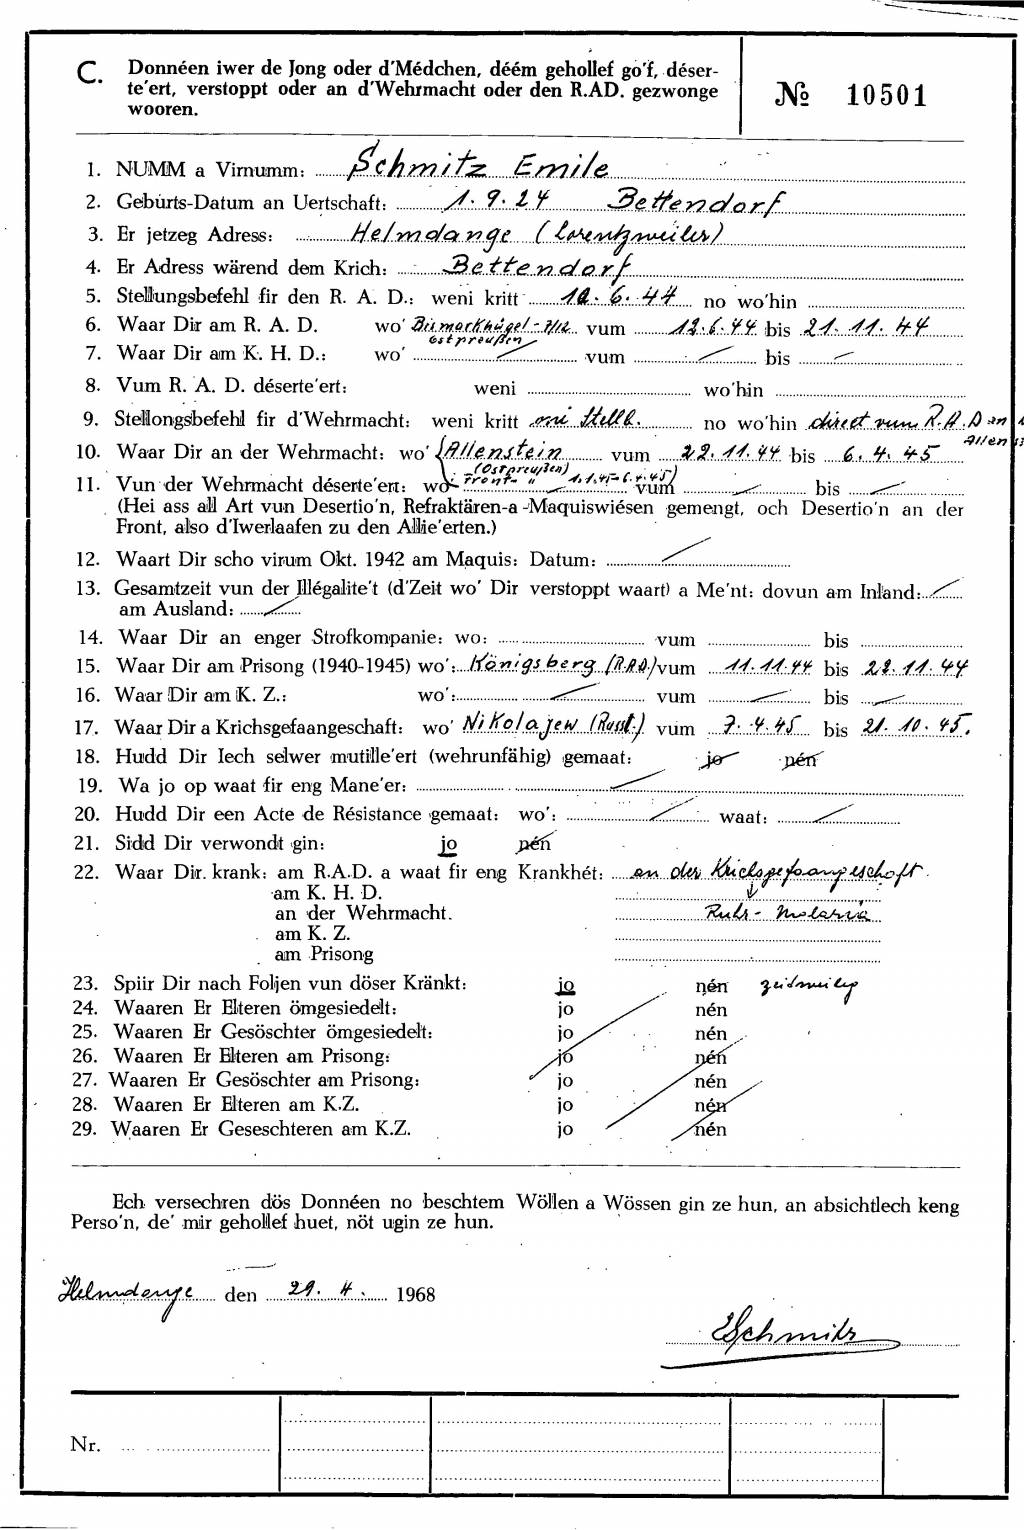 C. Donnéen iwer de Jong oder d'Médchen, déém gehollef go'f, déser-
te'ert, verstoppt oder an d'Wehrmacht oder den R.AD. gezwonge
wooren.
№ 10501
1. NUMM a Virnumm: Schmitz Emile
2. Geburts-Datum an Uertschaft: 1. 9. 24 Bettendorf
3. Er jetzeg Adress: Helmdange (Lorentzweiler)
4. Er Adress wärend dem Krich: Bettendorf
5. Stellungsbefehl fir den R. A. D.: weni kritt 12. 6. 44 no wo'hin
6. Waar Dir am R. A. D. wo' Bismarkhügel - 7/12 vum 12.6.44 bis 21. 11. 44
Ostpreußen
7. Waar Dir am K. H. D.: wo' vum bis
8. Vum R. A. D. déserte'ert: weni wo'hin
9. Stellongsbefehl fir d'Wehrmacht: weni kritt mi Stellb. no wo'hin direct vum R.A.D an
Allenst
10. Waar Dir an der Wehrmacht: wo' Allenstein vum 22. 11. 44 bis 6. 4. 45
(Ostpreußen)
Front- " 1.1.45-6.4.45)
11. Vun der Wehrmacht déserte'ert: wo vum bis
(Hei ass all Art vun Desertio'n, Refraktären-a-Maquiswiésen gemengt, och Desertio'n an der
Front, also d'Iwerlaafen zu den Allie'erten.)
12. Waart Dir scho virum Okt. 1942 am Maquis: Datum:
13. Gesamtzeit vun der Illégalite't (d'Zeit wo' Dir verstoppt waart) a Me'nt: dovun am Inland:
am Ausland:
14. Waar Dir an enger Strofkompanie: wo: vum bis
15. Waar Dir am Prisong (1940-1945) wo': Königsberg (R.A.D.) vum 11.11.44 bis 22. 11. 44
16. Waar Dir am K. Z.: wo': vum bis
17. Waar Dir a Krichsgefaangeschaft: wo' Nikolajew (Russl.) vum 7. 4. 45 bis 21. 10. 45.
18. Hudd Dir Iech selwer mutille'ert (wehrunfähig) gemaat: jo nén
19. Wa jo op waat fir eng Mane'er:
20. Hudd Dir een Acte de Résistance gemaat: wo': waat:
21. Sidd Dir verwondt gin: jo nén
22. Waar Dir krank: am R.A.D. a waat fir eng Krankhét: an der Krichsgefaangeschaft
am K. H. D.
an der Wehrmacht. Ruhr - Malaria
am K. Z.
am Prisong
23. Spiir Dir nach Foljen vun döser Kränkt: jo nén zeidweileg
24. Waaren Er Elteren ömgesiedelt: jo nén
25. Waaren Er Gesöschter ömgesiedelt: jo nén
26. Waaren Er Elteren am Prisong: jo nén
27. Waaren Er Gesöschter am Prisong: jo nén
28. Waaren Er Elteren am K.Z. jo nén
29. Waaren Er Geseschteren am K.Z. jo nén
Ech versechren dös Donnéen no beschtem Wöllen a Wössen gin ze hun, an absichtlech keng
Perso'n, de' mir gehollef huet, nöt ugin ze hun.
Helmdange den 29. 4. 1968
ESchmitz
Nr.